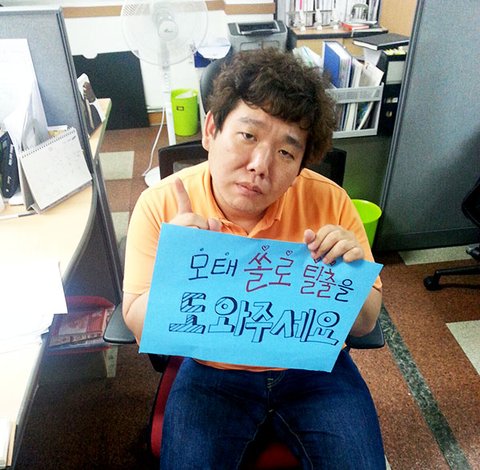 모태 쏠로 탈출을
도와주세요